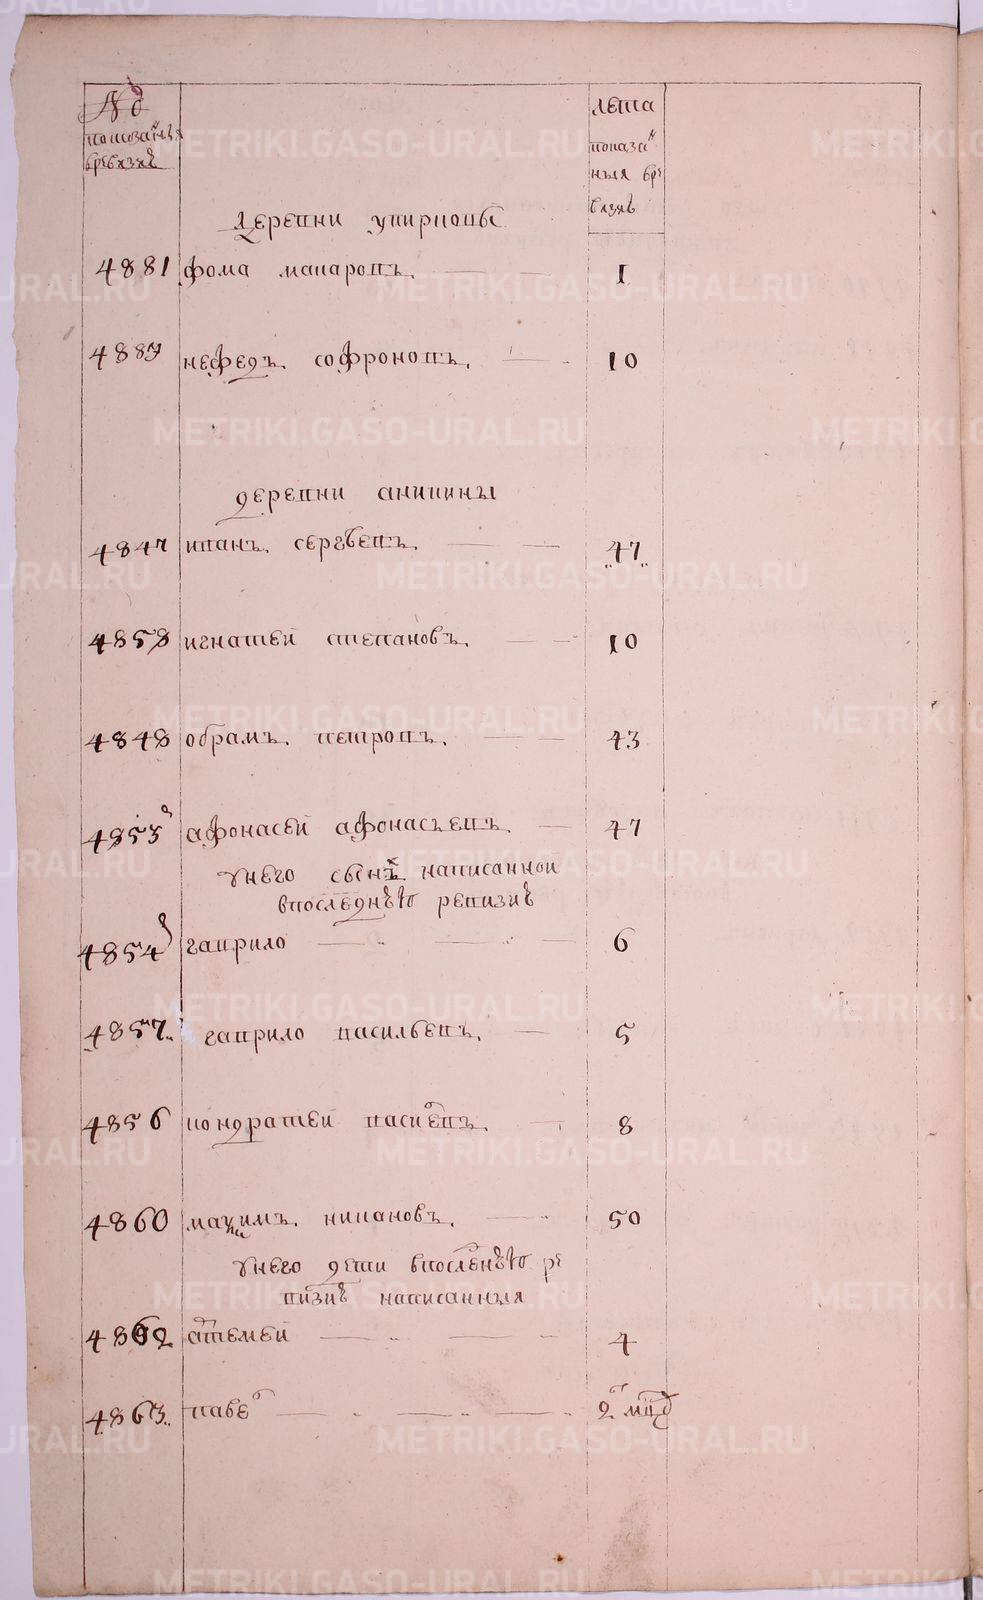 №
показанныя
вревизиѣ
лета
показан
ныя вре
визиѣ
деревни
4881 фома макаровъ 1
4887 нефедъ софроновъ 10
деревни аникины
4847 иванъ сергѣевъ 47
4858 игнатей степановъ 10
4848 обрамъ петровъ 43
4853 афонасей афонасьевъ 47
унего сынъ написанной
впоследнѣю ревизиѣ
4854 гаврило 6
4857 гаврило васильевъ 5
4856 кондратей васи евъ 8
4860 макимъ ивановъ 50
унего дети впоследнѣю ре
визиѣ написанныя
4862 артемей 4
4863 павел 2 мцд
METRIKI.GASO-URAL.RU